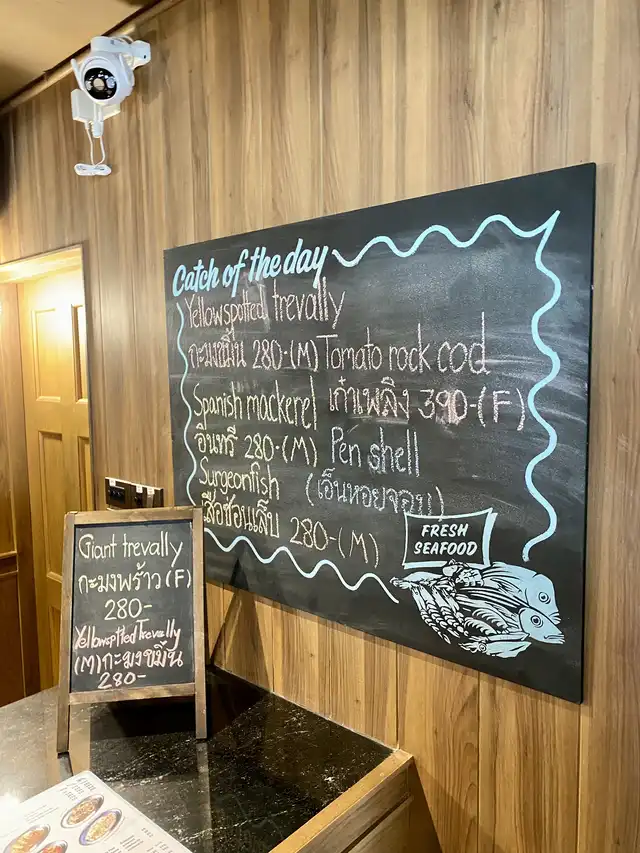 Catch of the day
Yellowspotted trevally
กะมงขมิ้น 280-(M)
Spanish mackerel
อินทรี 280-(M)
Surgeonfish
เสือซ่อนเล็บ 280-(M)
Tomato rock cod
เก๋าเพลิง 390-(F)
Pen shell
(เอ็นหอยจอบ)
FRESH
SEAFOOD
Giant trevally
กะมงพร้าว (F)
280-
Yellowspotted Trevally
(M) กะมงขมิ้น
280-